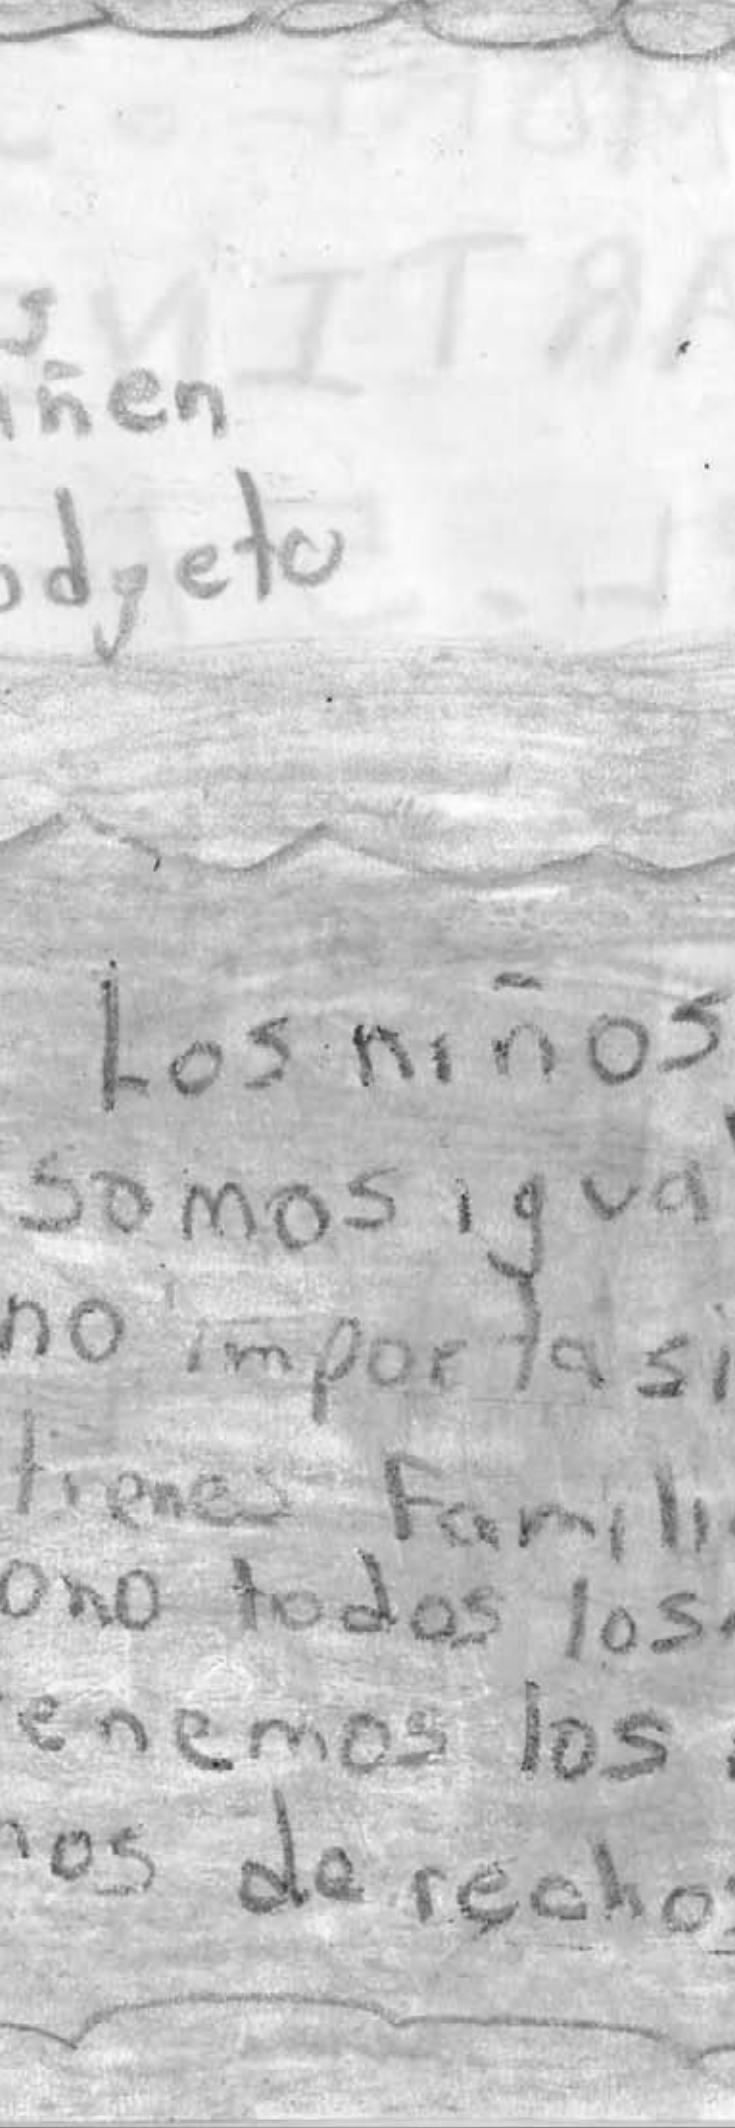 s
iñen
odgeto
Los niños
somos igua
no importa si
tienes Famili
ono todos los
enemos los
nos derechos